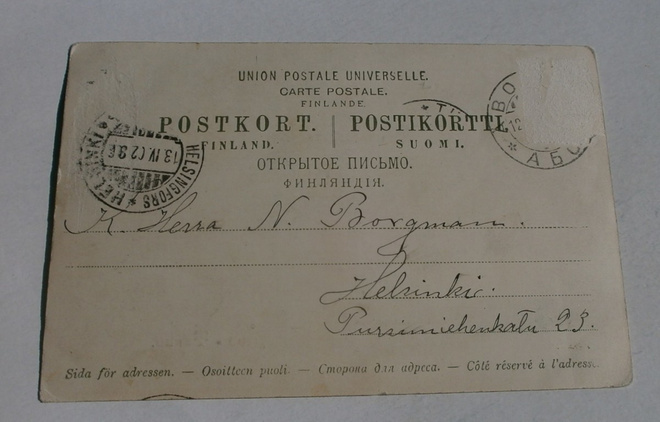 UNION POSTALE UNIVERSELLE.
CARTE POSTALE.
FINLANDE
POSTKORT. | POSTIKORTTI
FINLAND. SUOMI.
ОТКРЫТОЕ ПИСЬМО.
ФИНЛЯНДІЯ.
HELSINKI HELSINGFORS
13.IV.02
АБО
K. Herra N. Borgman.
Helsinki.
Pursimiehenkatu 23.
Sida för adressen. — Osoitteen puoli. — Сторона для адреса. — Côté réservé à l'adresse